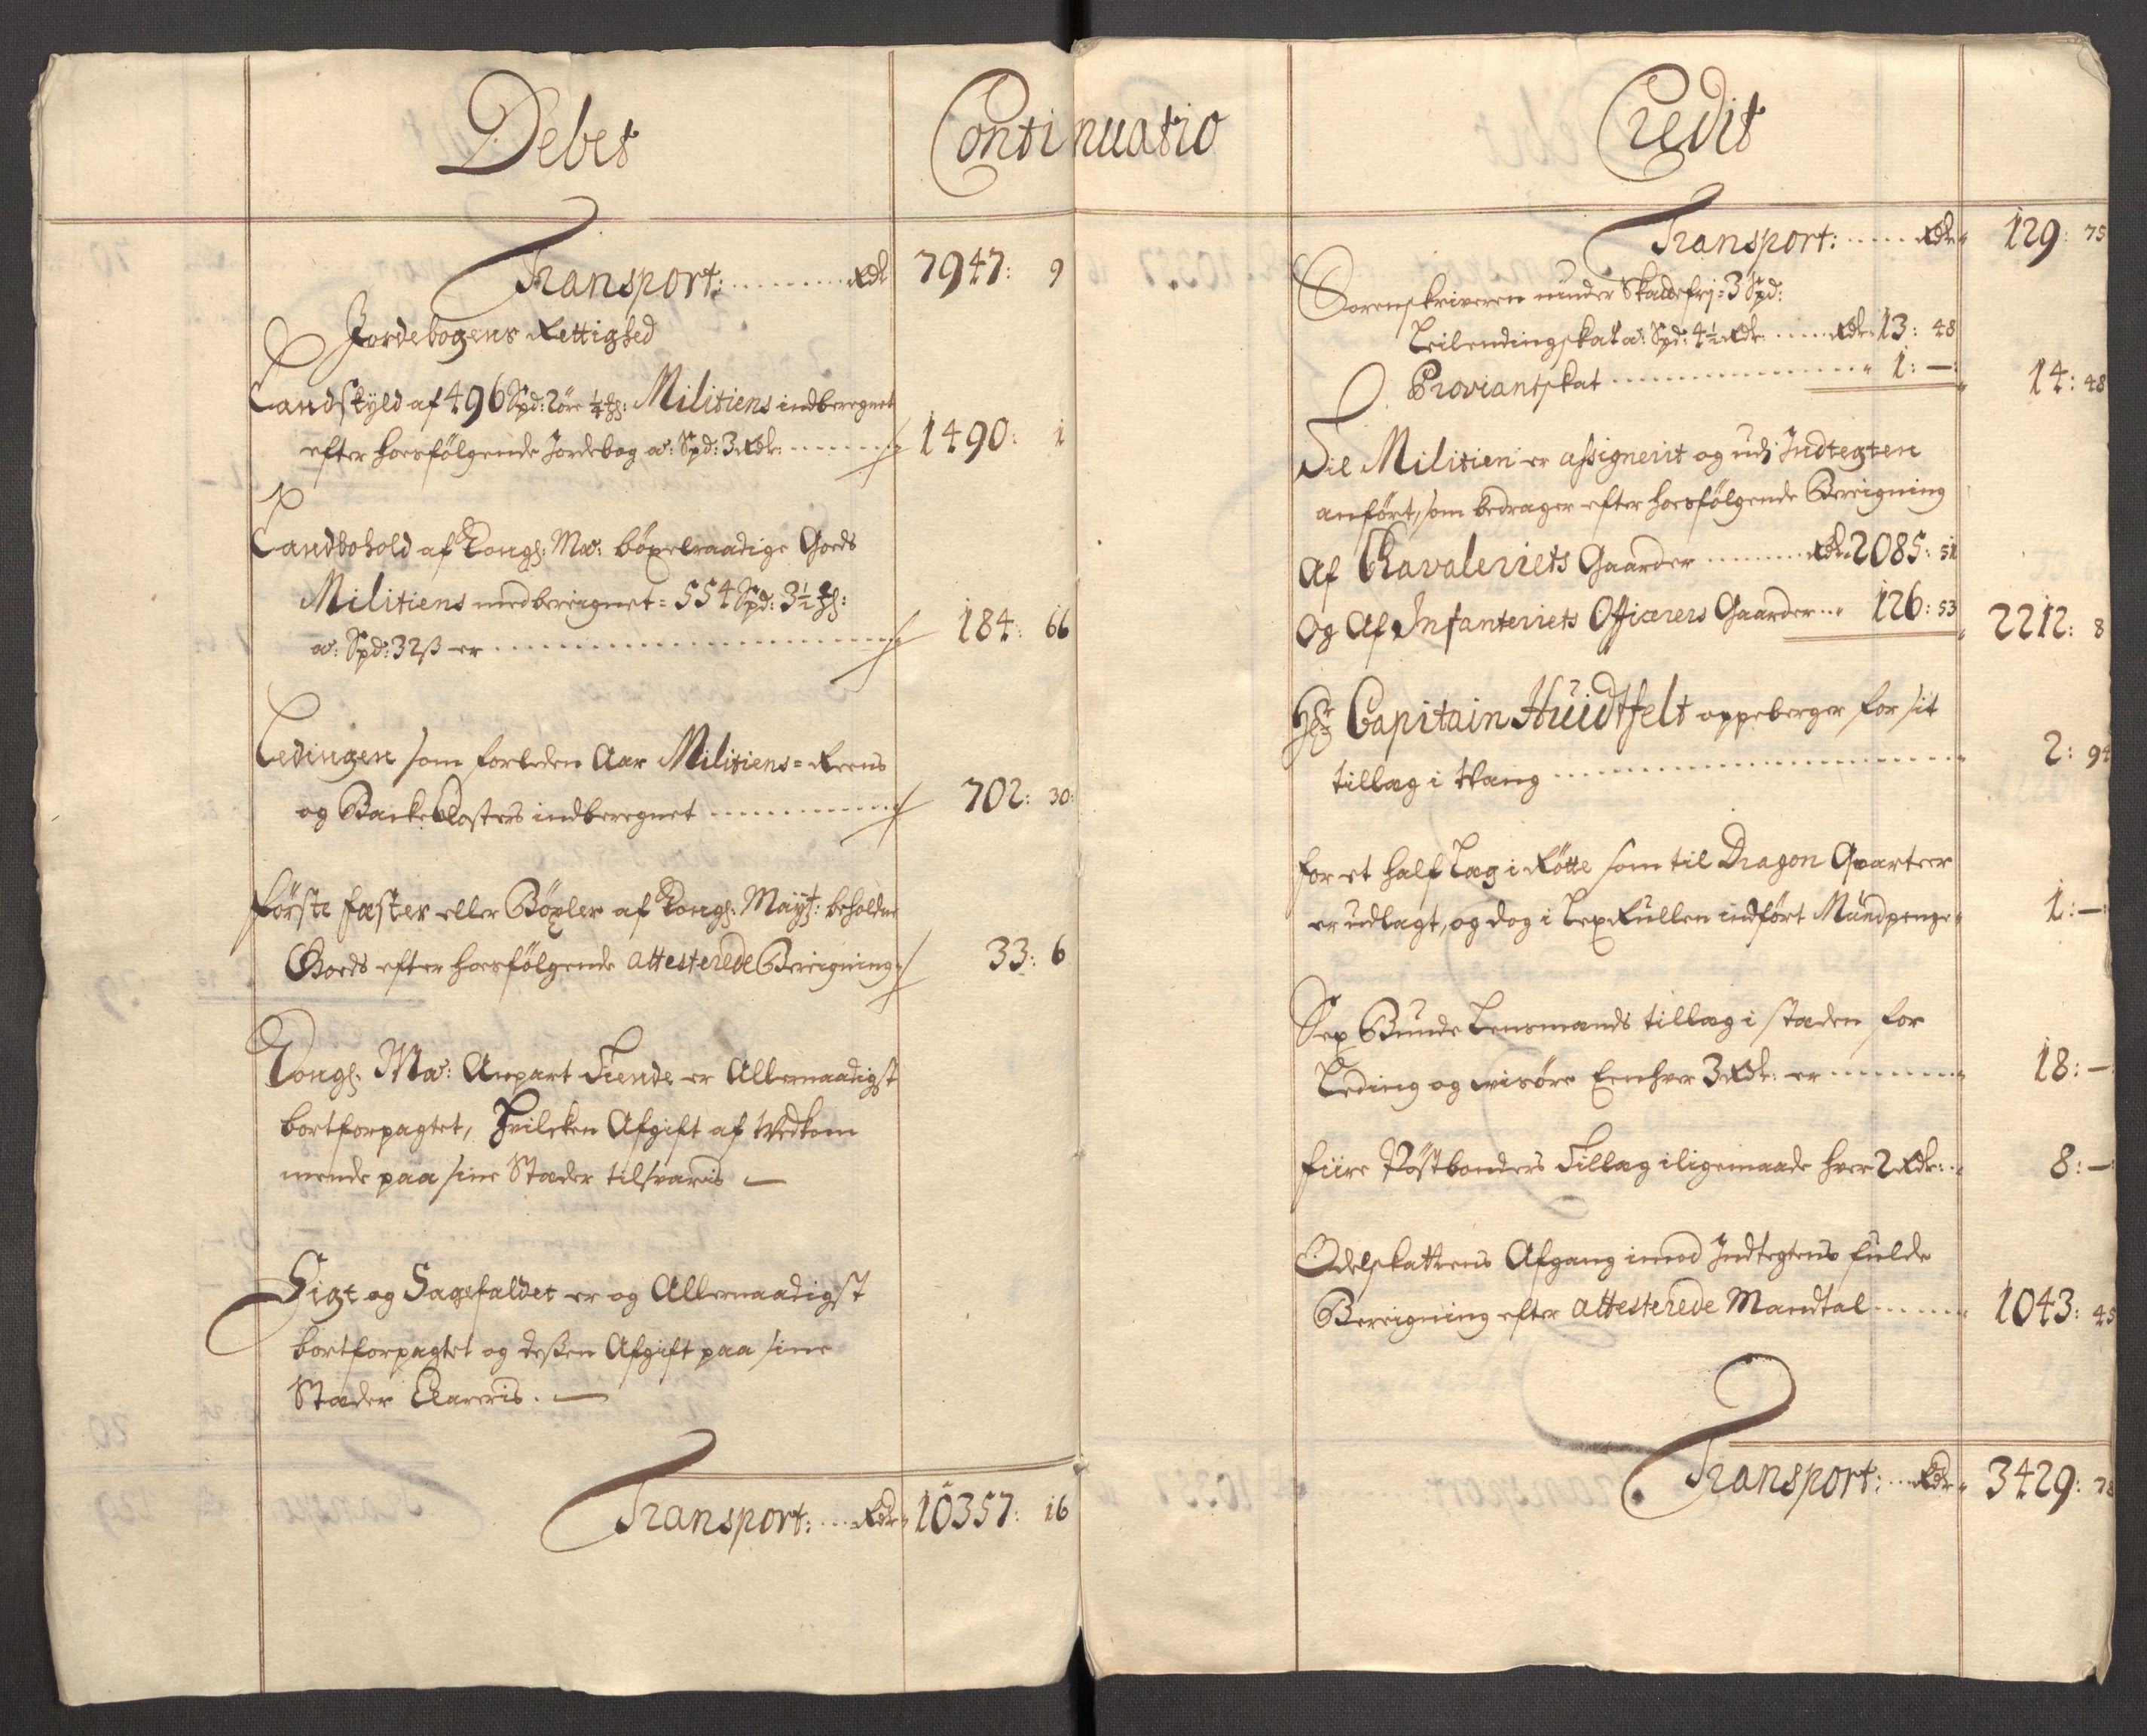 Debet
Continuatio
Transport: Rdr 7947: 9
Jordebogens Rettighed
Landskyld af 496 Spd: 2 öre Militiens indberegnet
efter hoesfölgende Jordebog a: Spd: 3 Rdr: 1490: 1
Landbohold af Kongs: Ma: böxelraadige Goeds
Militiens medbereignet = 554 Spd: 3½
a: Spd: 32 ß er 184: 66
Ledingen som forleden Aar Militiens = Reens
og Backe Closters indberegnet 702: 30:
förste fæster eller Böxler af Kongs: Mayt: beholdne
Goeds efter hoesfölgende attesterede Bereigning 33: 6
Kongs. Ma: Anpart Tiende er Allernaadigst
bortforpagtet, hvilcken Afgift af Vedkom
mende paa sine Stæder tilsvaris —
Sigt og Sagefaldet er og Allernaadigst
bortforpagtet og deßen Afgift paa sine
Stæder Clareris. —
Transport: Rdr 10357: 16
Credit
Transport: Rdr 129: 75
Sorenskriveren nünder Skattefrj = 3 Spd:
Leilendingskat a: Spd: 4½ Rdr Rdr 13: 48
Proviantskat 1: —: 14: 48
Til Militien er assignerit og udj Indtegten
anfört, som bedrager efter hoesfölgende Bereigning
Af Cavaleriets Gaarder Rdr 2085: 51
Og Af Infanteriets Officerers Gaarder 126: 53 2212: 8
Hr Capitain Huidtfelt oppeberger for sit
tillæg i Vang 2: 94
for et half Læg i Rötte som til Dragon Qvarteer
er udlagt, og dog i Lex Rullen indfört Mündpenge 1: —:
Sex Bunde Lensmænds tillæg i stæden for
Leding og visöre Eenhver 3 Rdr: er 18: —
fiire Postbønders Tillæg iligemaade hver 2 Rdr: 8: —
Odelskattens Afgang imod Indtegtens fulde
Bereigning efter attesterede Mandtal 1043: 45
Transport: Rdr 3429: 78